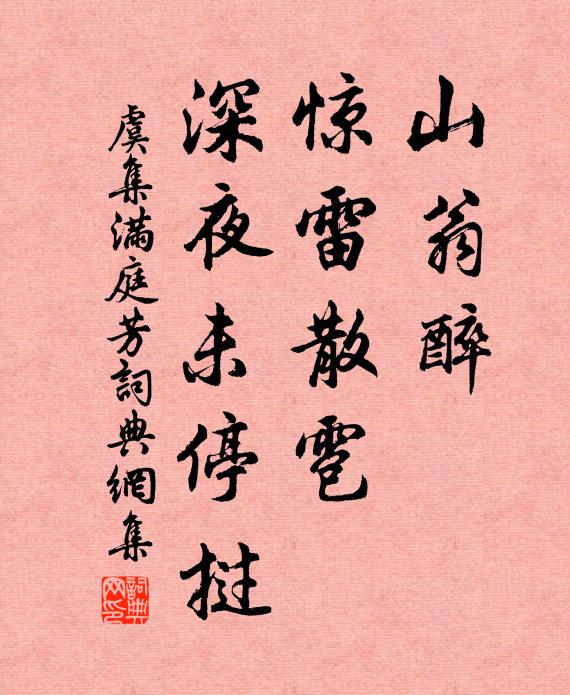 山翁醉
惊雷散雹
深夜未停挝
虞集满庭芳詞典網集
詞典網印